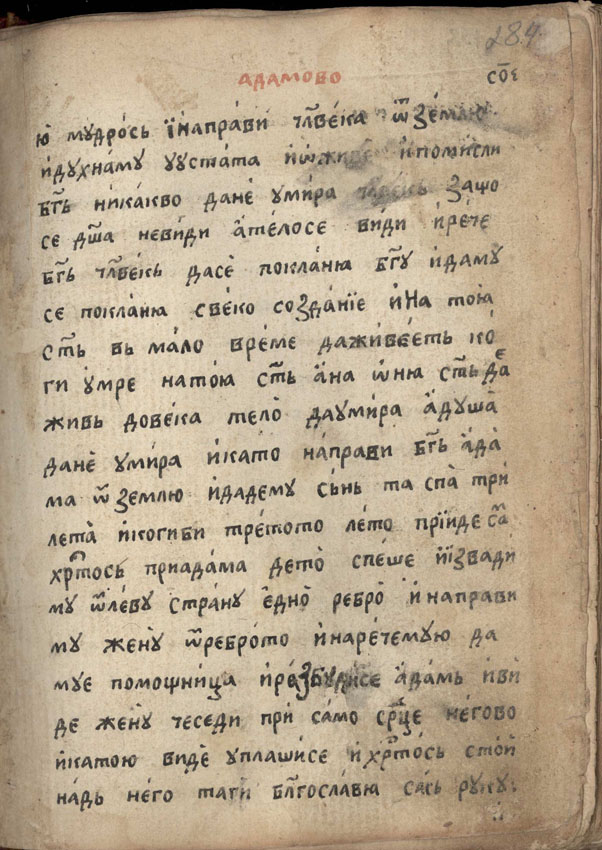 284
АДАМОВО
СО҃Е
ю҆ мудро́сь їнапра́ви чл҃ве́ка ѿзе́млю
и҆духна́му ууста́та и҆ѡ҆живѐ и҆поми́сли
бг҃ь ника́кво данѐ уми́ра чл҃ве́кь защо
се дш҃а неви́ди а҆те́лосе ви́ди и҆ре́че
бг҃ь чл҃ве́кь дасѐ покла́ню бг҃у и҆даму
се покла́ню све́ко созда́нїе и҆на тою
стѣ҃ь вь ма́ло вре́ме дажиⷡ҇ве́еть ко́
ги у҆мре нато́ю ст҃ь а҆на ѡ҆ню ст҃ь да
живь дове́ка тело̀ дауми́ра а҆душа̀
данѐ уми́ра и҆като на́прави бг҃ь а҆да́
ма ѿземлю и҆дадему сьнь та спа̀ три́
лета̀ и҆когиби тре́тото ле́то прїиде са
хр҃тось приада́ма дето̀ спе́ше и҆їзвади
му ѿле́ву стра́ну е҆дно̀ ребро̀ и҆направи
му жену̀ ѿребро́то и҆наре́чемую да
муе помощни́ца и҆разбудисе а҆да́мь и҆ви́
де жену̀ чеседи при са́мо ср҃це не́гово
и҆катою видѐ уплаши́се и҆хр҃то́сь сто́й
на́дь не́го таги бл҃госла́вю сась руку: